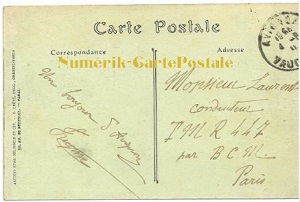 Carte Postale
Correspondance
Adresse
Numérik-CartePostale
Un bonjour d'Avignon
Monsieur Laurent
conducteur
TMR 447
par BCM
Paris